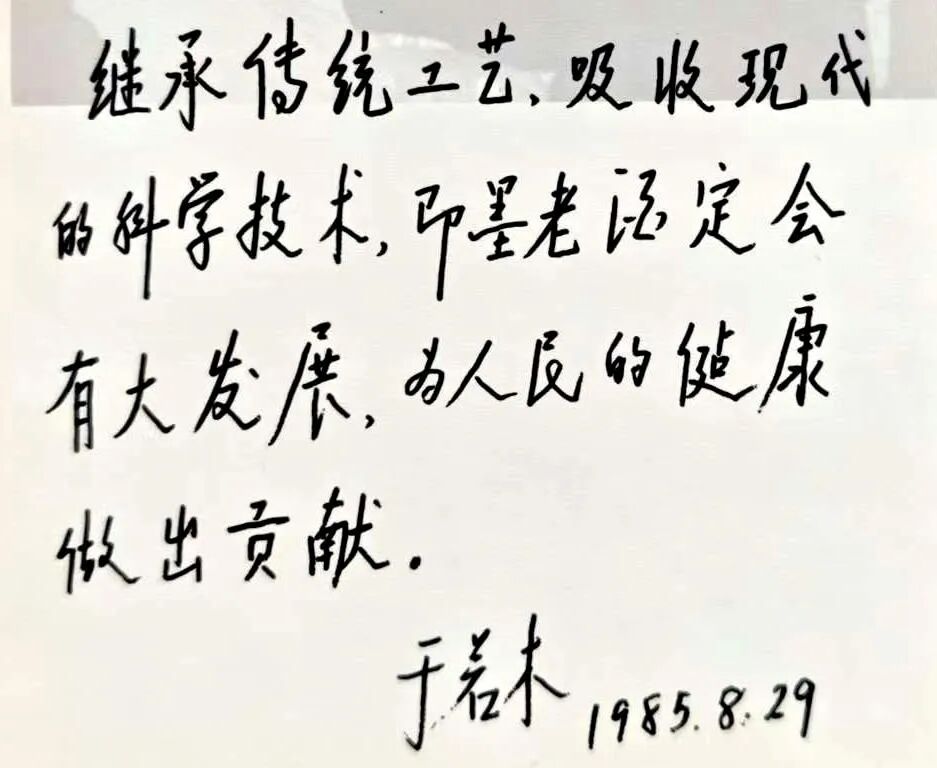 继承传统工艺、吸收现代
的科学技术,即墨老酒定会
有大发展,为人民的健康
做出贡献。
于若木 1985.8.29